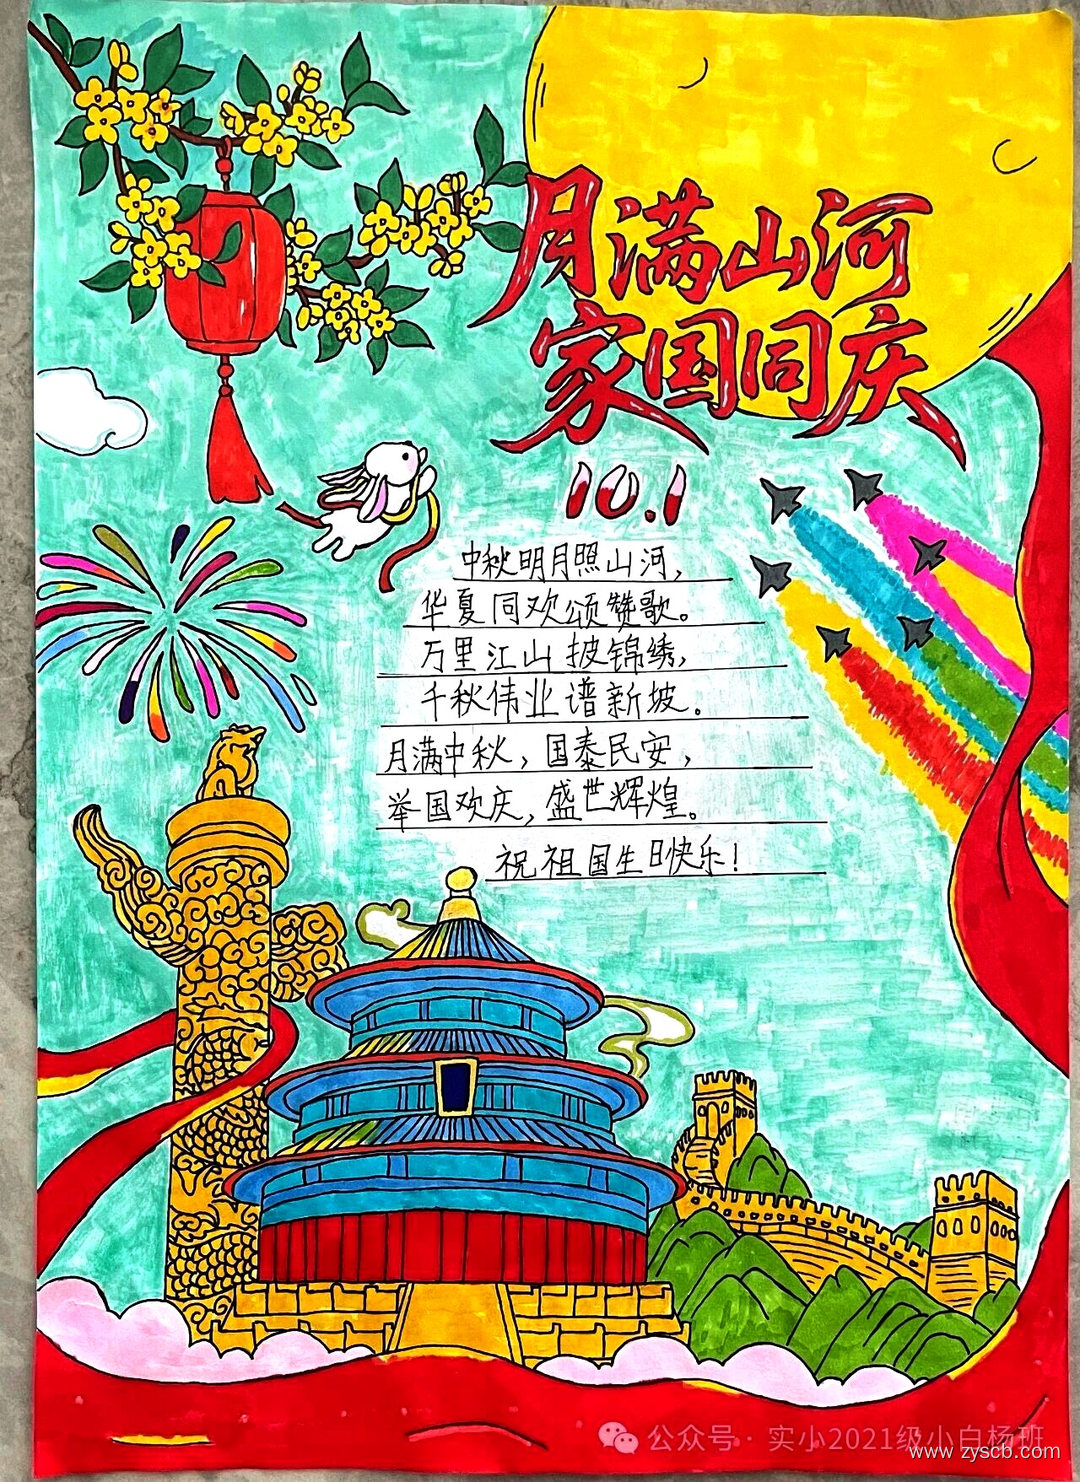 月满山河
家国同庆
10.1
中秋明月照山河，
华夏同欢颂赞歌。
万里江山披锦绣，
千秋伟业谱新坡。
月满中秋，国泰民安，
举国欢庆，盛世辉煌。
祝祖国生日快乐！
公众号·实小2021级小白杨班
www.zyscb.com